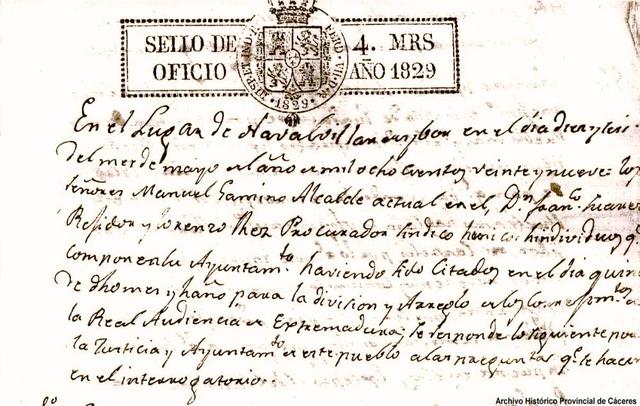 SELLO DE 4. MRS
OFICIO AÑO 1829
HISP. ET IND. R FERD. VII D. G.
1829
En el Lugar de Navalvillar de ybor en el dia diez y seis
del mes de mayo el año de mil ocho cientos veinte y nueve: los
señores Manuel Camino Alcalde actual en el, Dn Juan
Rexidor y Lorenzo Procurador sindico individuos qe
componen su Ayuntamto haviendo sido Citados en el dia quin
de dho mes y haño para la division y Arreglo
la Real Audiencia de Extremadura; se responde lo siguiente por
la Justicia y Ayuntamto de este pueblo a las preguntas qe se hacen
en el interrogatorio.
Archivo Histórico Provincial de Cáceres